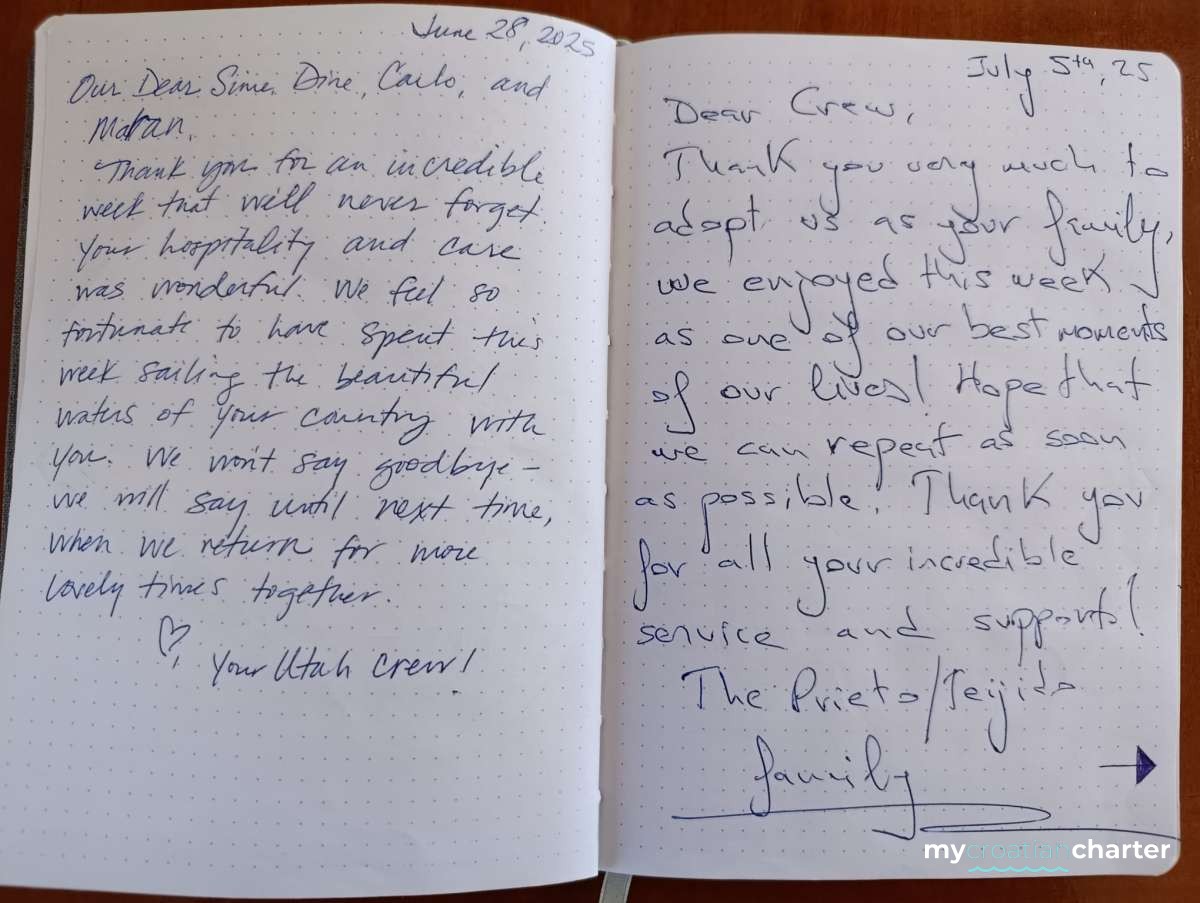 June 28, 2025
Our Dear Sime, Dine, Carlo, and
Maran,
Thank you for an incredible
week that we'll never forget.
Your hospitality and care
was wonderful. We feel so
fortunate to have spent this
week sailing the beautiful
waters of your country with
you. We won't say goodbye –
we will say until next time,
when we return for more
lovely times together.
♡,
Your Utah Crew!
July 5th, 25
Dear Crew,
Thank you very much to
adopt us as your family,
we enjoyed this week
as one of our best moments
of our lives! Hope that
we can repeat as soon
as possible! Thank you
for all your incredible
service and support!
The Prieto/Teijido
family
mycroatiancharter